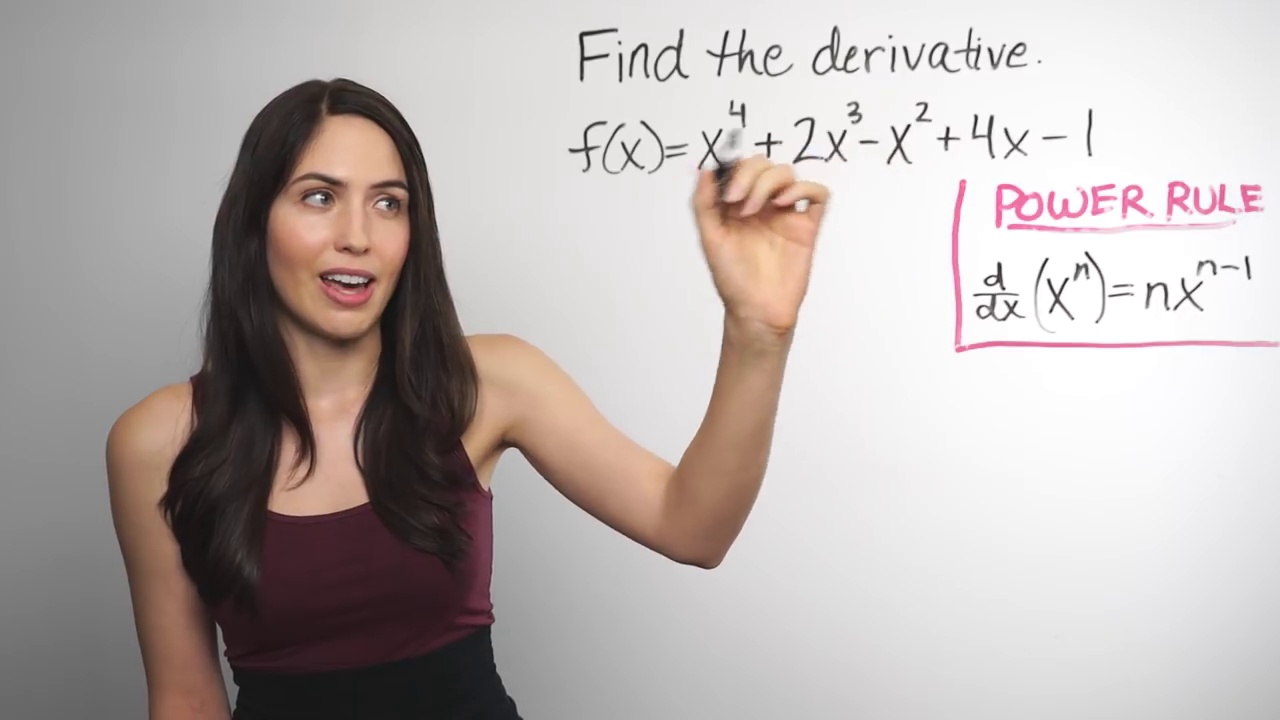 Find the derivative.
f(x)=x⁴+2x³-x²+4x-1
POWER RULE
d/dx(xⁿ)=nxⁿ⁻¹